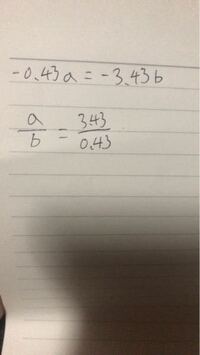 -0.43a = -3.43b
a/b = 3.43/0.43